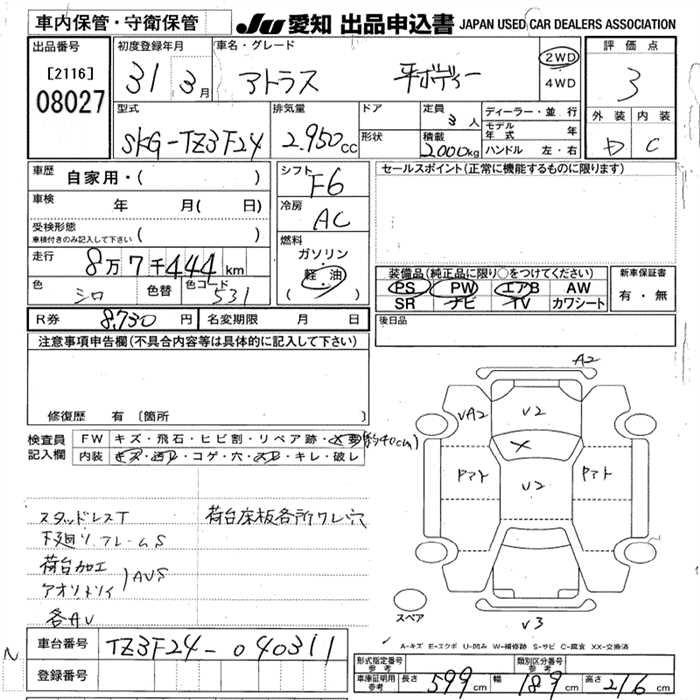 車内保管・守衛保管 JU 愛知 出品申込書 JAPAN USED CAR DEALERS ASSOCIATION
出品番号 初度登録年月 車名・グレード 評価点
[2116] 31年 3月 アトラス 平ボディー 2WD 3
08027 4WD
型式 排気量 ドア 定員 3人 ディーラー・並行 外装 内装
SKG-TZ3F24 2.950cc 形状 積載 2000kg モデル年式 年 D C
ハンドル 左・右
車歴 自家用・( ) シフト F6 セールスポイント(正常に機能するものに限ります)
車検 年 月( 日) 冷房 AC
受検形態
車検付きのみ記入して下さい ( ) 燃料
走行 8万7千444km ガソリン 装備品(純正品に限り○をつけてください) 新車保証書
色 シロ 色替 色コード 531 軽油 PS PW エアB AW 有・無
( ・ ) SR ナビ TV カワシート
R券 8,730円 名変期限 月 日 後日品
注意事項申告欄(不具合内容等は具体的に記入して下さい)
修復歴 有 [箇所
検査員記入欄 FW キズ・飛石・ヒビ割・リペア跡・交要(約40cm)
内装 キズ・汚レ・コゲ・穴・スレ・キレ・破レ
A2
VA2 V2
アマト V2 アマト
スタッドレスT 荷台床板各所ワレ穴
下廻リ.フレームS
荷台加工
アオリトソイ AUS
各AU
スペア V3
A-キズ E-エクボ U-凹み W-補修跡 S-サビ C-腐食 XX-交換済
N 車台番号 TZ3F24-040311
登録番号
形式指定番号 参考 類別区分番号 参考
車庫証明用 参考 長さ 599cm 幅 189cm 高さ 216cm